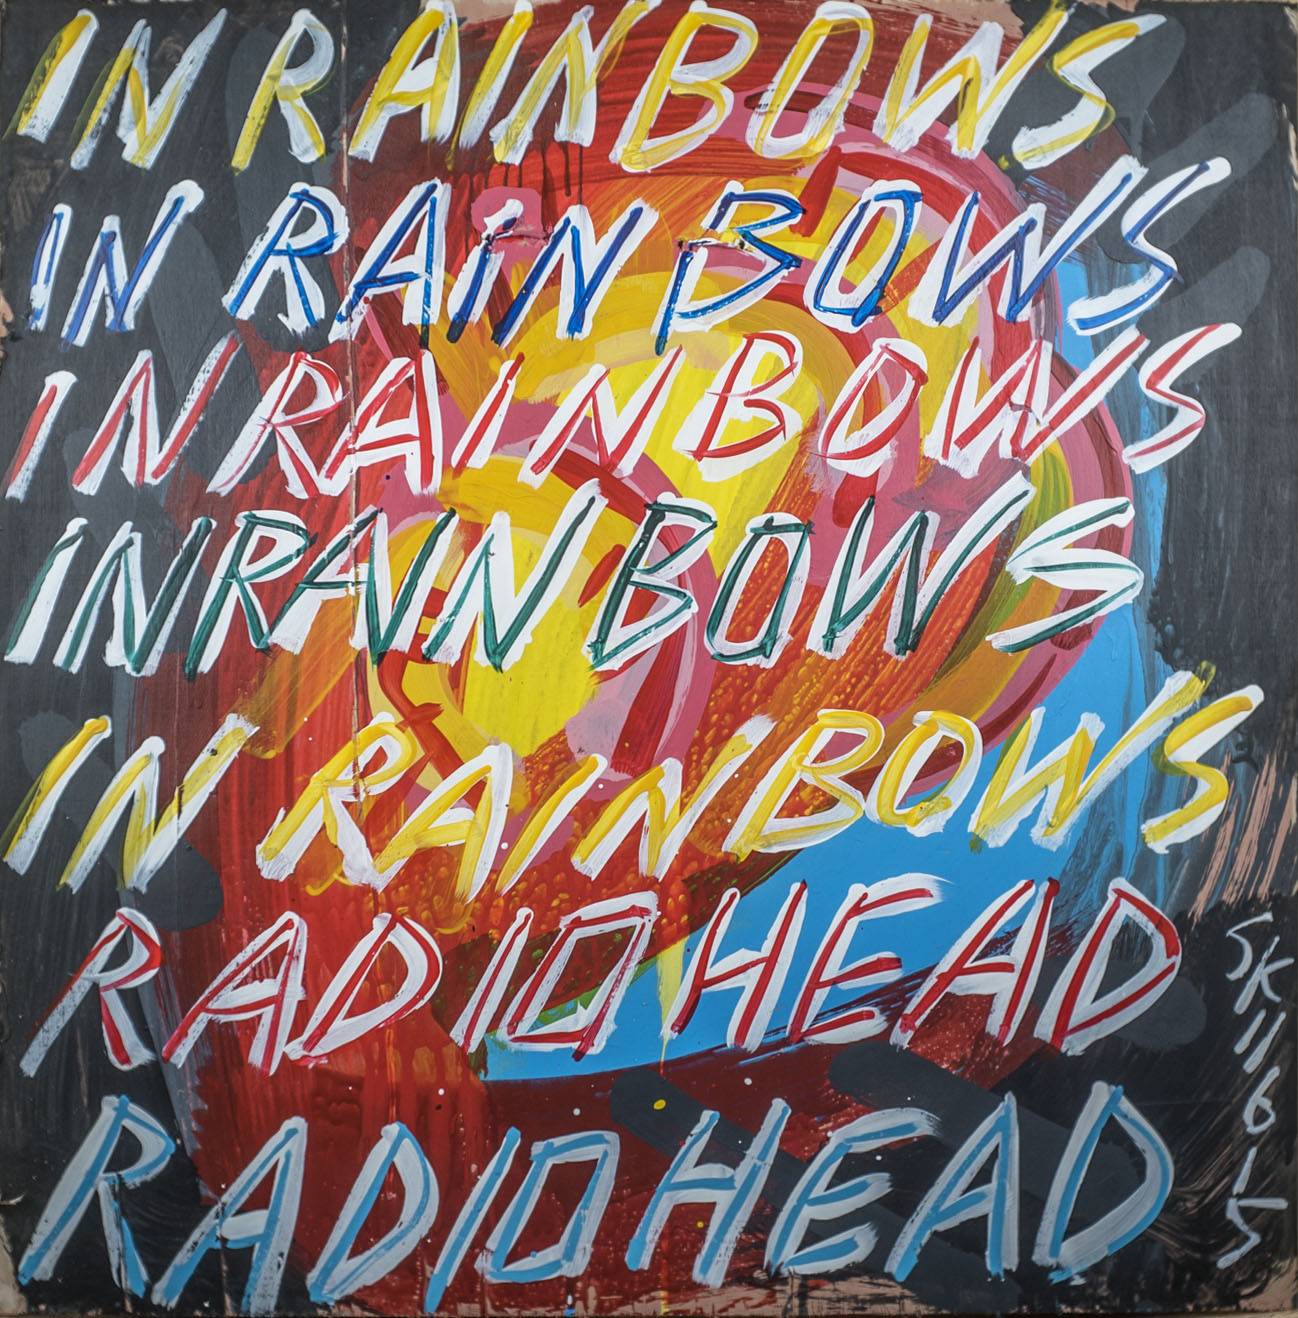 IN RAINBOWS
IN RAINBOWS
IN RAINBOWS
IN RAINBOWS
IN RAINBOWS
RADIOHEAD
RADIOHEAD
SK 11 6 15